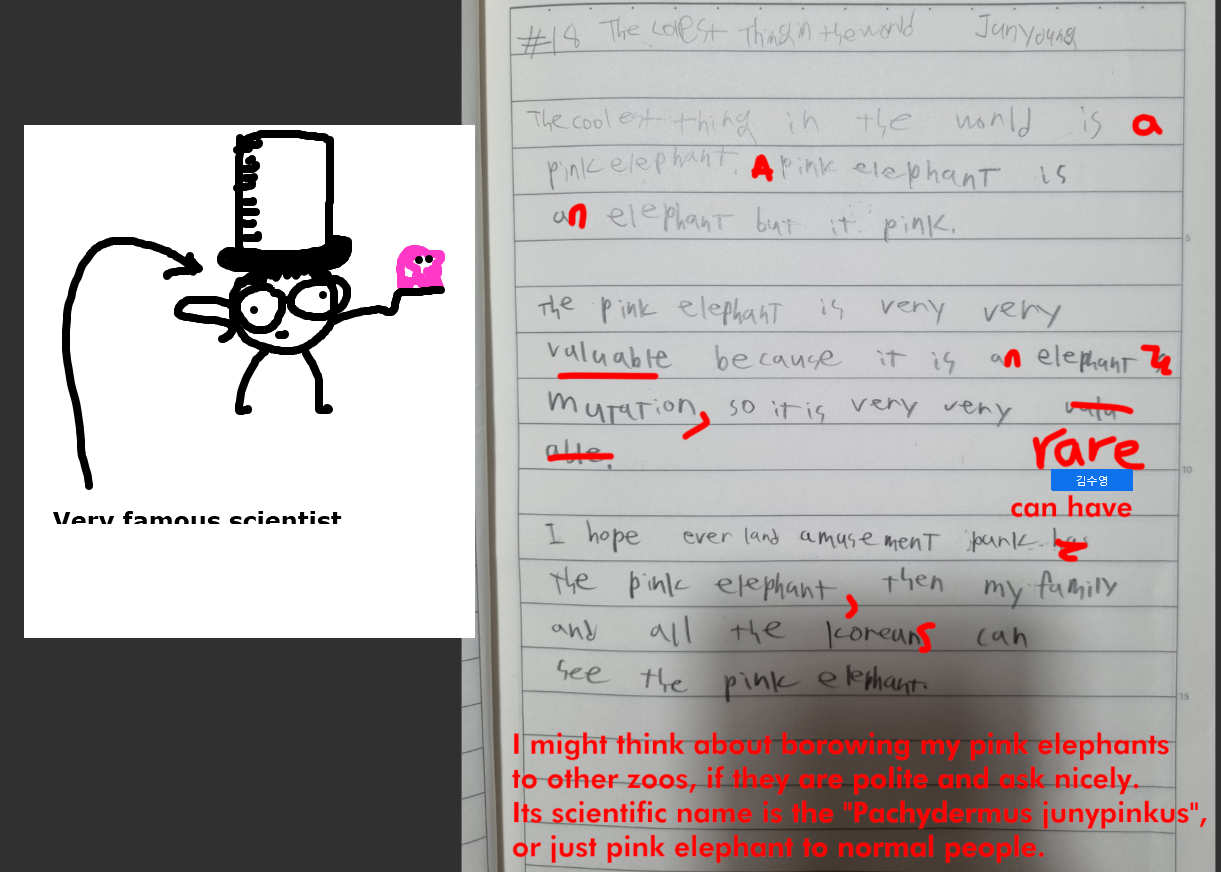 #18 The colest Thing in the world Junyoung
The coolest thing in the world is a
pink elephant. A pink elephant is
an elephant but it pink.
The pink elephant is very very
valuable because it is an elephant
mutation, so it is very very valu
able.
rare
김수영
can have
I hope ever land amusement park has
the pink elephant, then my family
and all the Koreans can
see the pink elephant.
I might think about borowing my pink elephants
to other zoos, if they are polite and ask nicely.
Its scientific name is the "Pachydermus junypinkus",
or just pink elephant to normal people.
Very famous scientist